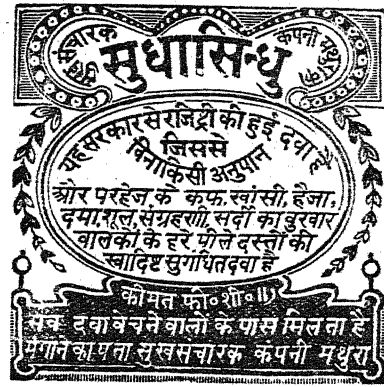 सुखसंचारक
सुधासिन्धु
कंपनी मथुरा का
यह सरकार से रजिष्ट्री की हुई दवा है
जिससे
बिना किसी अनुपान
और परहेज के कफ, खांसी, हैजा,
दमा, शूल, संग्रहणी, सर्दी का बुखार
बालकों के हरे पीले दस्तों की
स्वादिष्ट सुगंधित दवा है
कीमत फी॰शी॰॥)
सब दवा बेचने वालों के पास मिलता है
मंगाने का पता सुखसंचारक कंपनी मथुरा